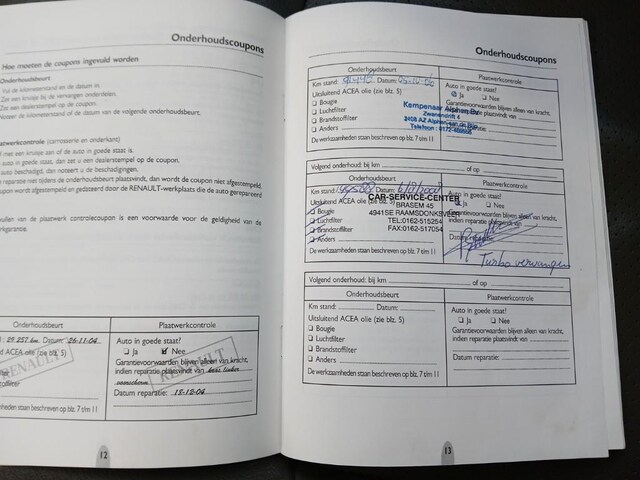 Onderhoudscoupons
Hoe moeten de coupons ingevuld worden
Onderhoudsbeurt
Vul de kilometerstand en de datum in.
Zet een kruisje bij de vervangen onderdelen.
Zet een dealerstempel op de coupon.
Noteer de kilometerstand of de datum van de volgende onderhoudsbeurt.
Plaatwerkcontrole (carrosserie en onderkant)
met een kruisje aan of de auto in goede staat is.
auto in goede staat, dan zet u een dealerstempel op de coupon.
auto beschadigd, dan noteert u de beschadigingen.
reparatie niet tijdens de onderhoudsbeurt plaatsvindt, dan wordt de coupon niet afgestempeld.
coupon wordt afgestempeld en gedateerd door de RENAULT-werkplaats die de auto gerepareerd
invullen van de plaatwerk controlecoupon is een voorwaarde voor de geldigheid van de
garantie.
Onderhoudsbeurt
Plaatwerkcontrole
29.257 km Datum: 26-11-04
ACEA olie (zie blz. 5)
Auto in goede staat?
Ja
Nee
Garantievoorwaarden blijven alleen van kracht,
indien reparatie plaatsvindt van
Datum reparatie: 15-12-04
RENAULT
RENAULT
werkzaamheden staan beschreven op blz. 7 t/m 11
12
Onderhoudscoupons
Onderhoudsbeurt
Plaatwerkcontrole
Km stand: Datum:
Uitsluitend ACEA olie (zie blz. 5)
Bougie
Luchtfilter
Brandstoffilter
Anders
De werkzaamheden staan beschreven op blz. 7 t/m 11
Auto in goede staat?
Ja
Nee
Garantievoorwaarden blijven alleen van kracht,
Kempenaer Alphen BV
Zwanendrift 4
2408 AZ Alphen aan den Rijn
Telefoon: 0172-
Volgend onderhoud: bij km of
Onderhoudsbeurt
Plaatwerkcontrole
Km stand: Datum:
Uitsluitend ACEA olie (zie blz. 5)
Bougie
Luchtfilter
Brandstoffilter
Anders
De werkzaamheden staan beschreven op blz. 7 t/m 11
Auto in goede staat?
Ja
Nee
Garantievoorwaarden blijven alleen van kracht,
indien reparatie plaatsvindt van
CAR-SERVICE-CENTER
BRASEM 45
4941SE RAAMSDONKSVEER
TEL:0162-515254
FAX:0162-517054
Turbo vervangen
Volgend onderhoud: bij km of
Onderhoudsbeurt
Plaatwerkcontrole
Km stand: Datum:
Uitsluitend ACEA olie (zie blz. 5)
Bougie
Luchtfilter
Brandstoffilter
Anders
De werkzaamheden staan beschreven op blz. 7 t/m 11
Auto in goede staat?
Ja
Nee
Garantievoorwaarden blijven alleen van kracht,
indien reparatie plaatsvindt van
Datum reparatie:
13